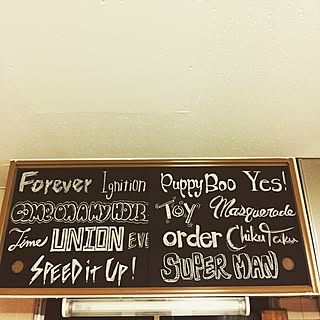 Forever Ignition Puppy Boo Yes!
COME ON A MY HOUSE "TOY" Masquerade
Time UNION EVE order Chiku Taku
SPEED it UP! SUPER MAN